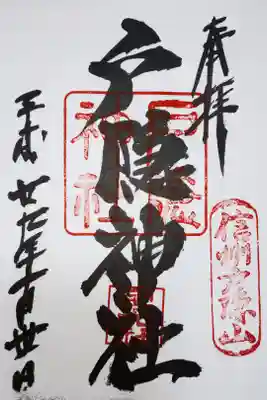 奉拝
戸隠神社
信州戸隠山
平成廿七年十月廿日